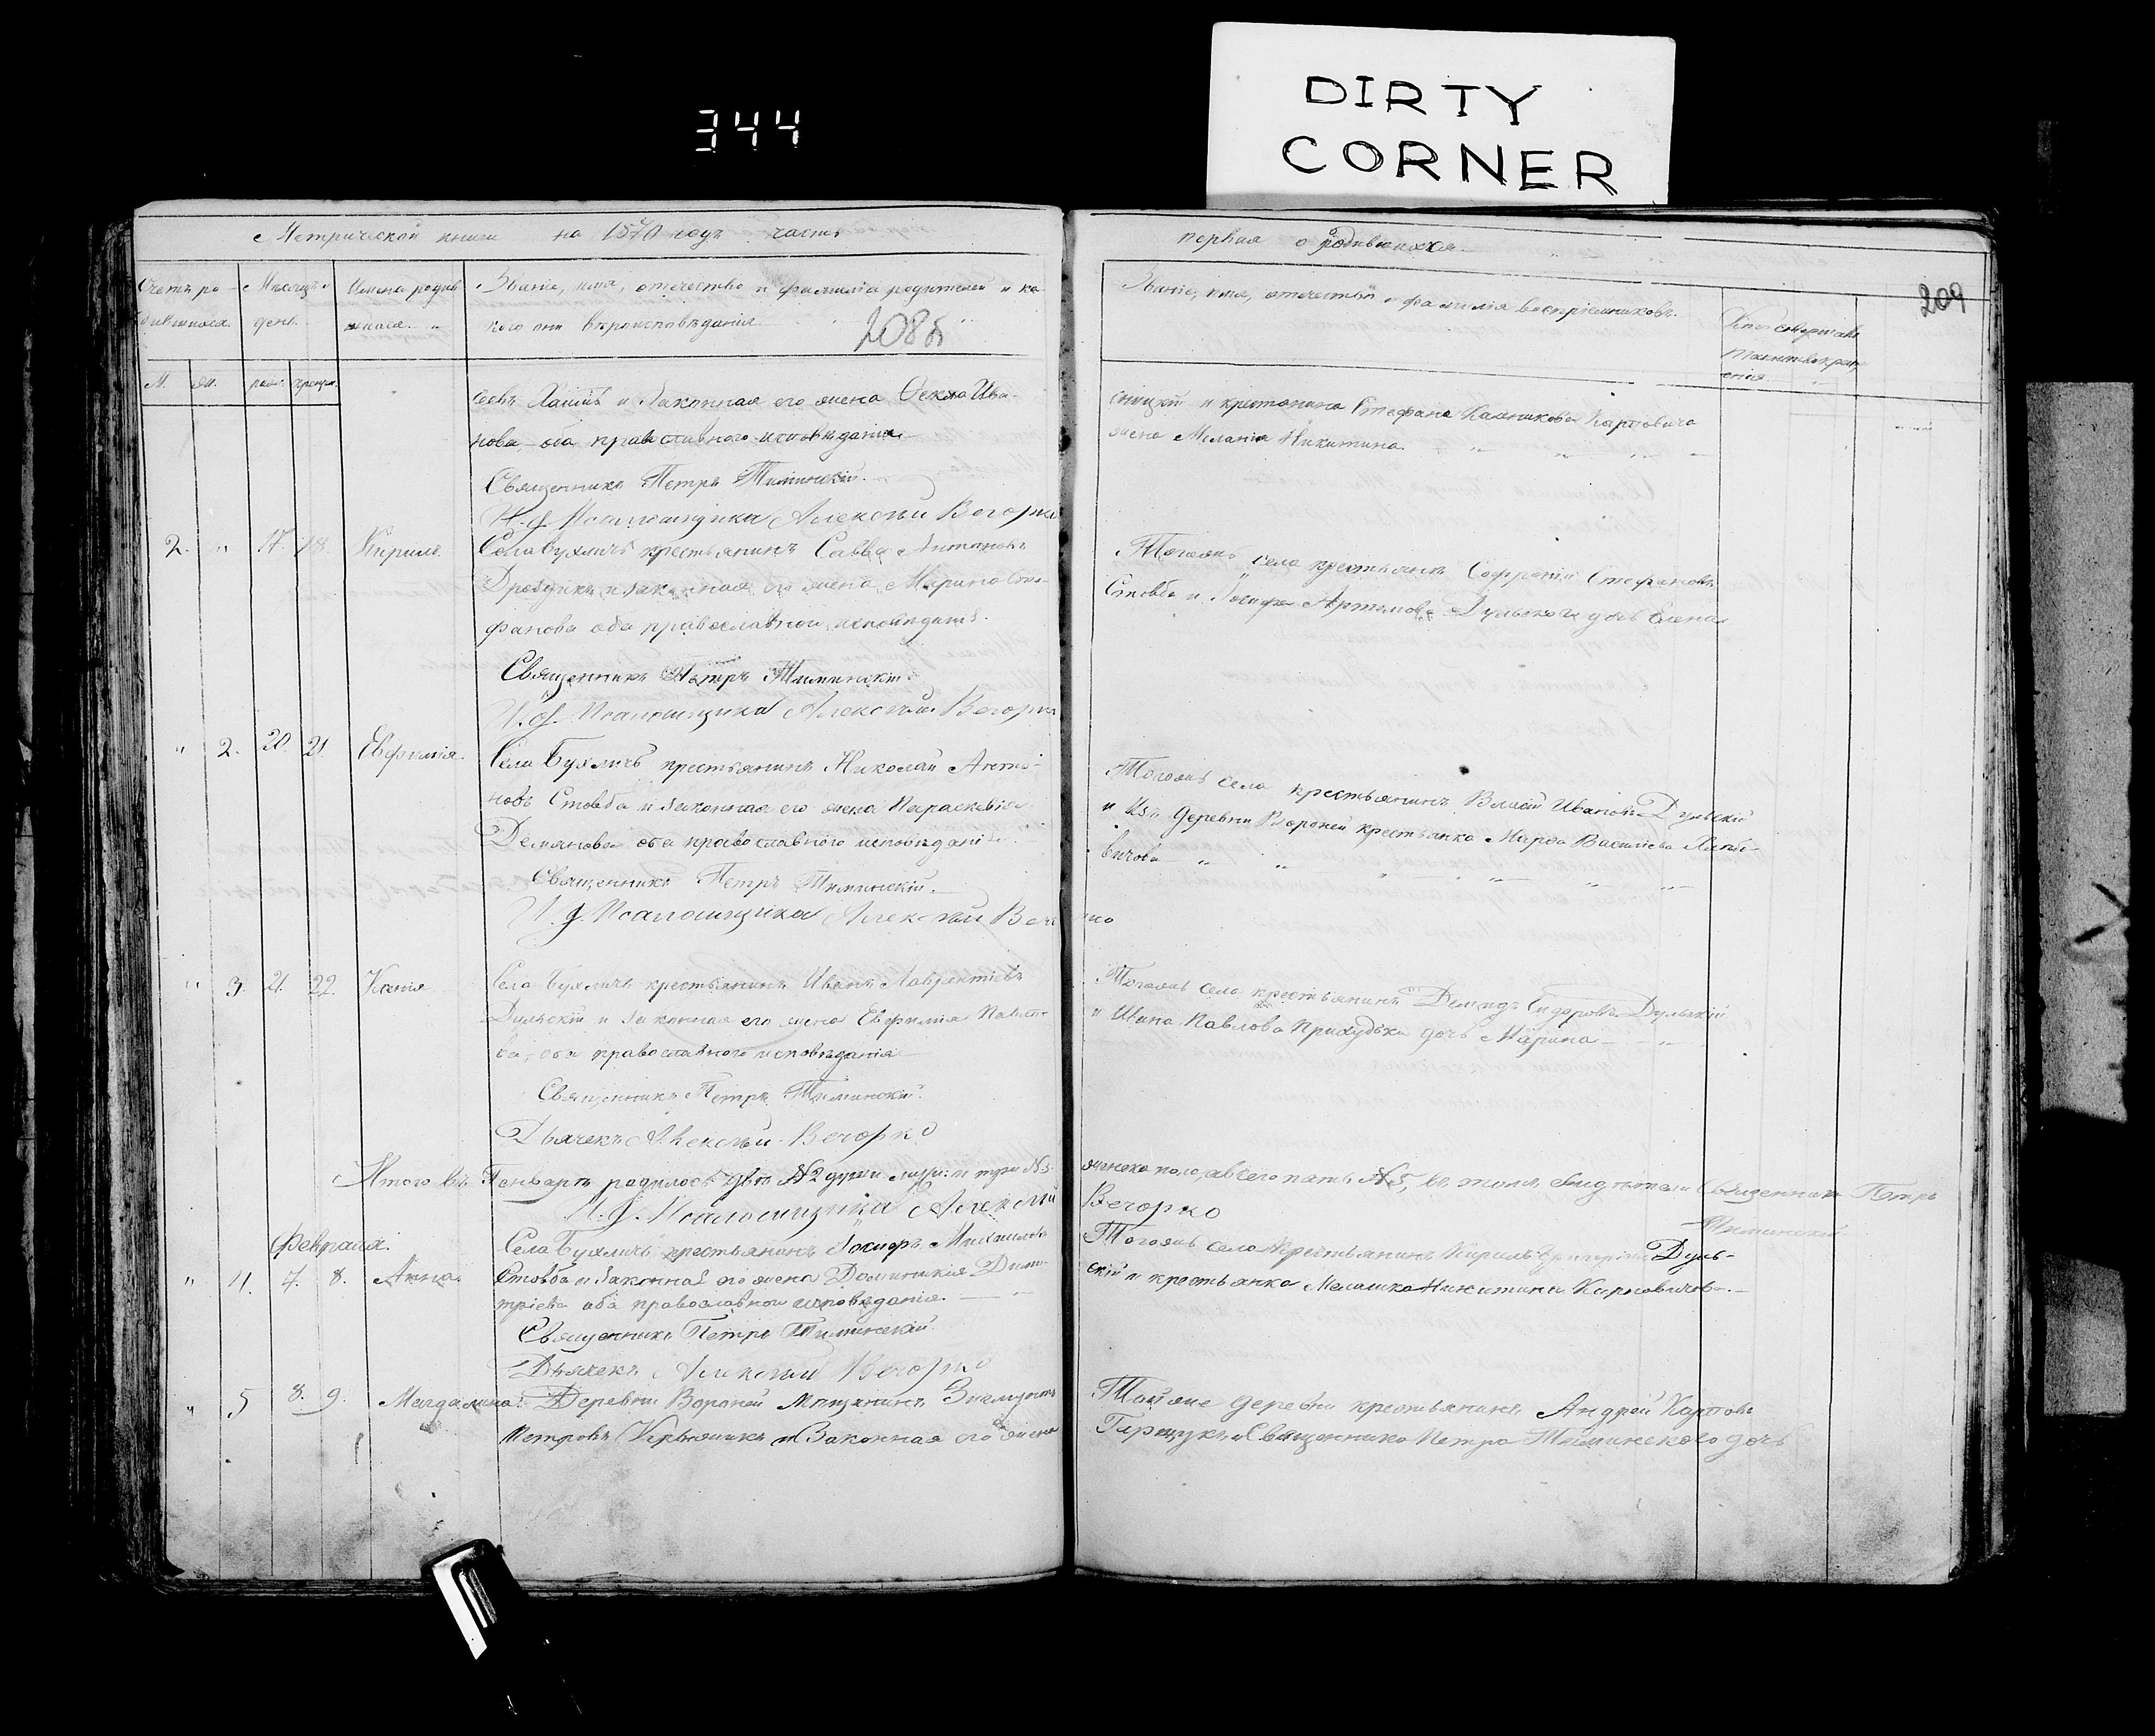 344
DIRTY
CORNER
Метрической книги на 1870 годъ часть
первая о родившихся
Счетъ ро-
дившихся.
Мѣсяцъ и
день.
Имена родив
шихся.
Званіе, имя, отечество и фамилія родителей и ка-
кого они вѣроисповѣданія.
208б
Званіе, имя, отечество и фамилія воспріемниковъ.
Кто совершалъ
таинство крещ
енія
209
М. ж. рожд. крещен.
сѣевъ и законная его жена Ѳекла Ива-
нова оба православнаго исповѣданія
Священникъ Петръ Тиминскій.
И. д. Псаломщика Алексѣй Вечорко
и крестьянина Стефана Карповича
жена Меланія Никитина.
2. " 17. 18. Кирилъ. Села Бухличъ крестьянинъ Савва Антоновъ
и законная его жена Марина Сте-
фанова оба православнаго исповѣданія.
Священникъ Петръ Тиминскій
И. д. Псаломщика Алексѣй Вечорко
Тогожъ села крестьянинъ Софроній Стефановъ
Стовба и Іосифа Артемова Дульскаго дочь Елена
" 2. 20. 21. Евфимія. Села Бухличъ крестьянинъ Николай Анто-
новъ Стовба и законная его жена Параскевія
Демянова оба православнаго исповѣданія.
Священникъ Петръ Тиминскій.
И. д. Псаломщика Алексѣй Вечорко
Тогожъ села крестьянинъ Власій Ивановъ Дульскій
и изъ деревни Вороней крестьянка Марѳа Василіева
вичова
" 3. 21. 22. Ксенія Села Бухличъ крестьянинъ Иванъ Лаврентіевъ
Дульскій и законная его жена Евфимія Павло-
ва, оба православнаго исповѣданія
Священникъ Петръ Тиминскій.
Дьячекъ Алексѣй Вечорко
Тогожъ села крестьянинъ Демидъ Сидоровъ Дульскій
и Ивана Павлова Приходька дочь Марина
Итого въ Генварѣ родилось два №2 души муж: и три №3
женска пола, а всего пять №5, въ томъ свидѣтели Священникъ Петръ
Тиминскій
И. д. Псаломщика Алексѣй
Вечорко
Февраля.
" 4. 7. 8. Анна. Села Бухличъ крестьянинъ Іосифъ Михаиловъ
Стовба и законная его жена Домникія Дими-
тріева оба православнаго исповѣданія.
Священникъ Петръ Тиминскій
Дьячекъ Алексѣй Вечорко
Тогожъ села крестьянинъ Кирилъ Григоріевъ Дуль-
скій и крестьянка Мелашка Никитина Карповичова.
" 5 8. 9. Магдалина: Деревни Вороней Мѣщанинъ Зигмунтъ
Петровъ и Законная его жена
Тойже деревни крестьянинъ Андрей Карповъ
Гарщукъ и Священника Петра Тиминскаго дочь